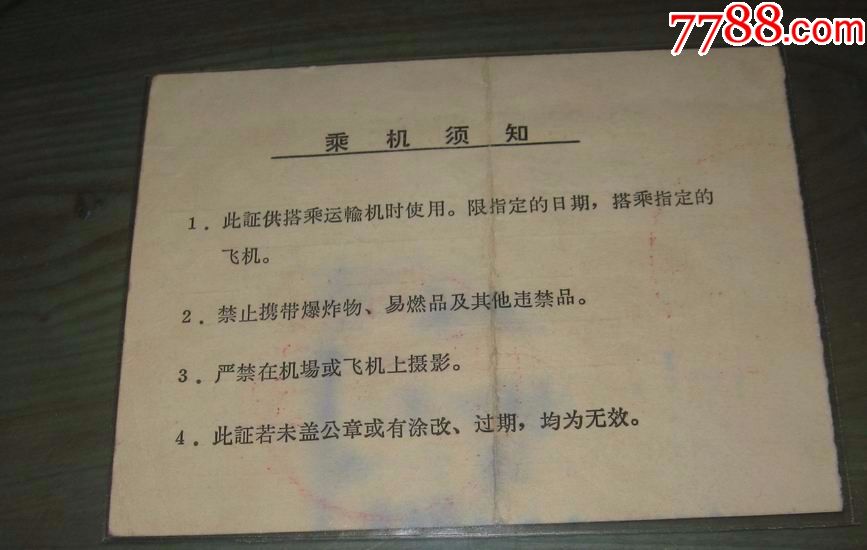 7788.com
乘机须知
1．此証供搭乘运輸机时使用。限指定的日期，搭乘指定的
飞机。
2．禁止携带爆炸物、易燃品及其他违禁品。
3．严禁在机場或飞机上摄影。
4．此証若未盖公章或有涂改、过期，均为无效。